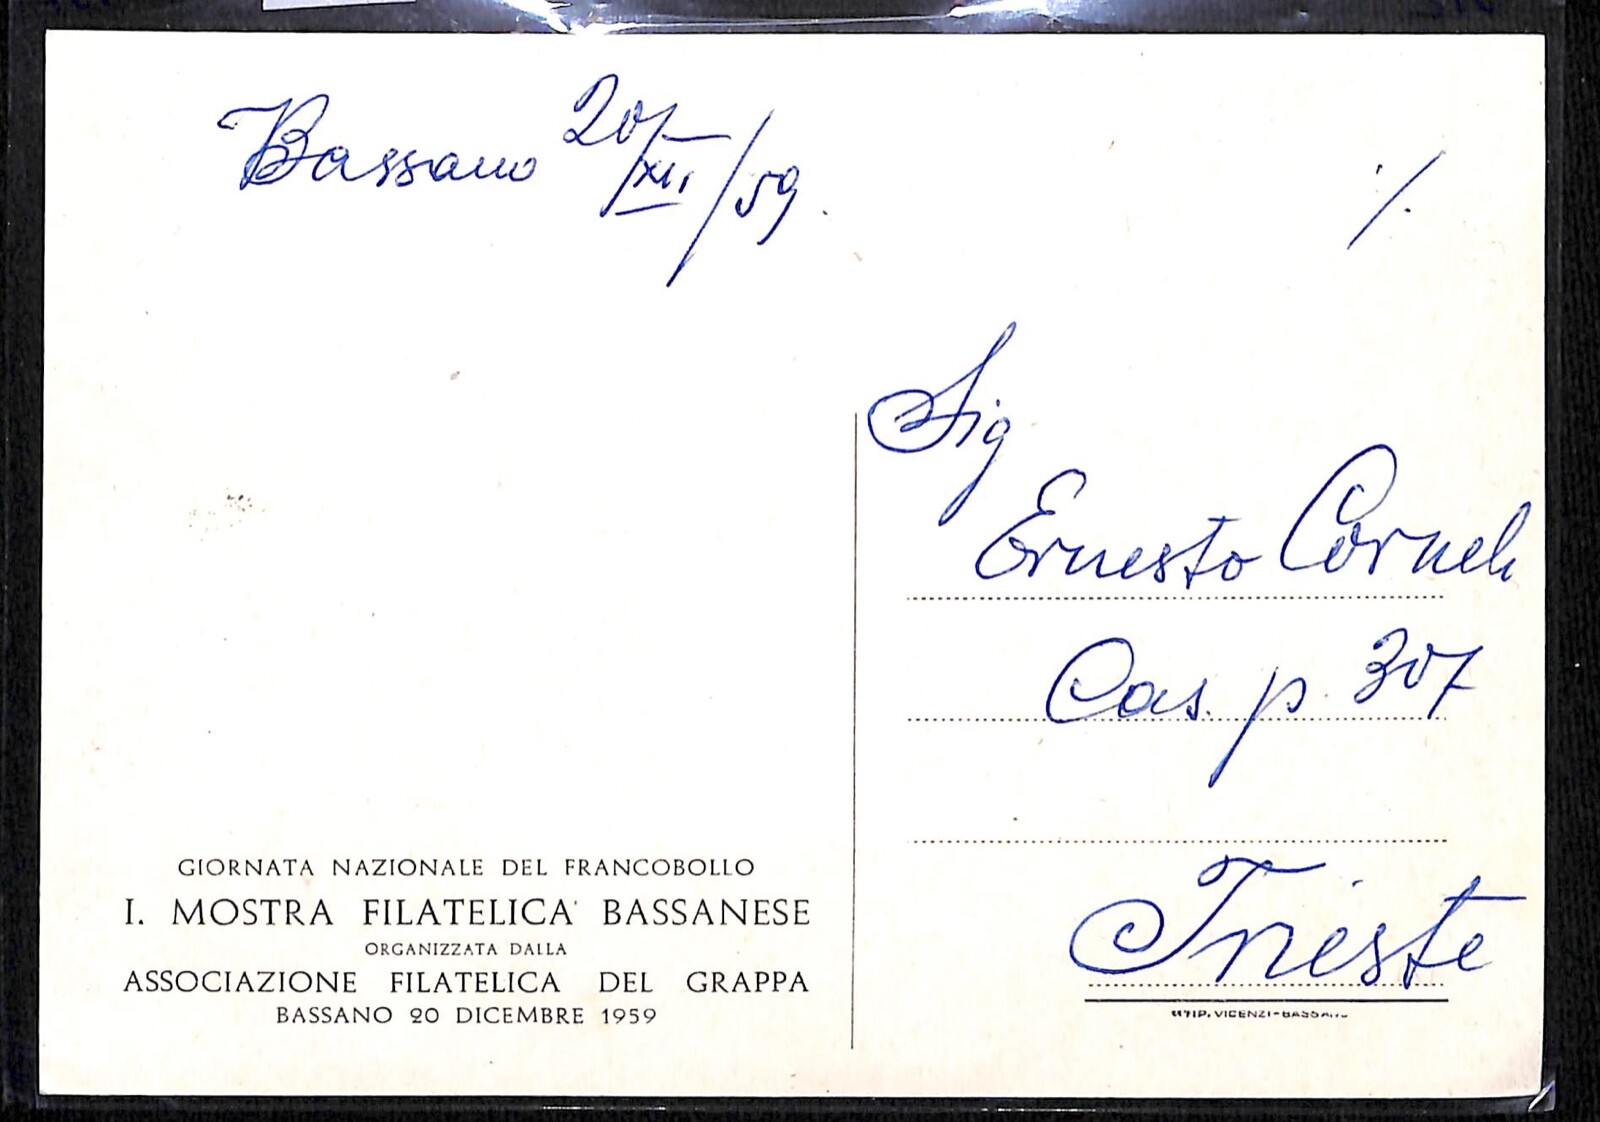 Bassano 20/XII/59.
./.
Sig
Ernesto Corneli
Cas. p. 307
Trieste
GIORNATA NAZIONALE DEL FRANCOBOLLO
I. MOSTRA FILATELICA BASSANESE
ORGANIZZATA DALLA
ASSOCIAZIONE FILATELICA DEL GRAPPA
BASSANO 20 DICEMBRE 1959
TIP. VICENZI-BASSANO